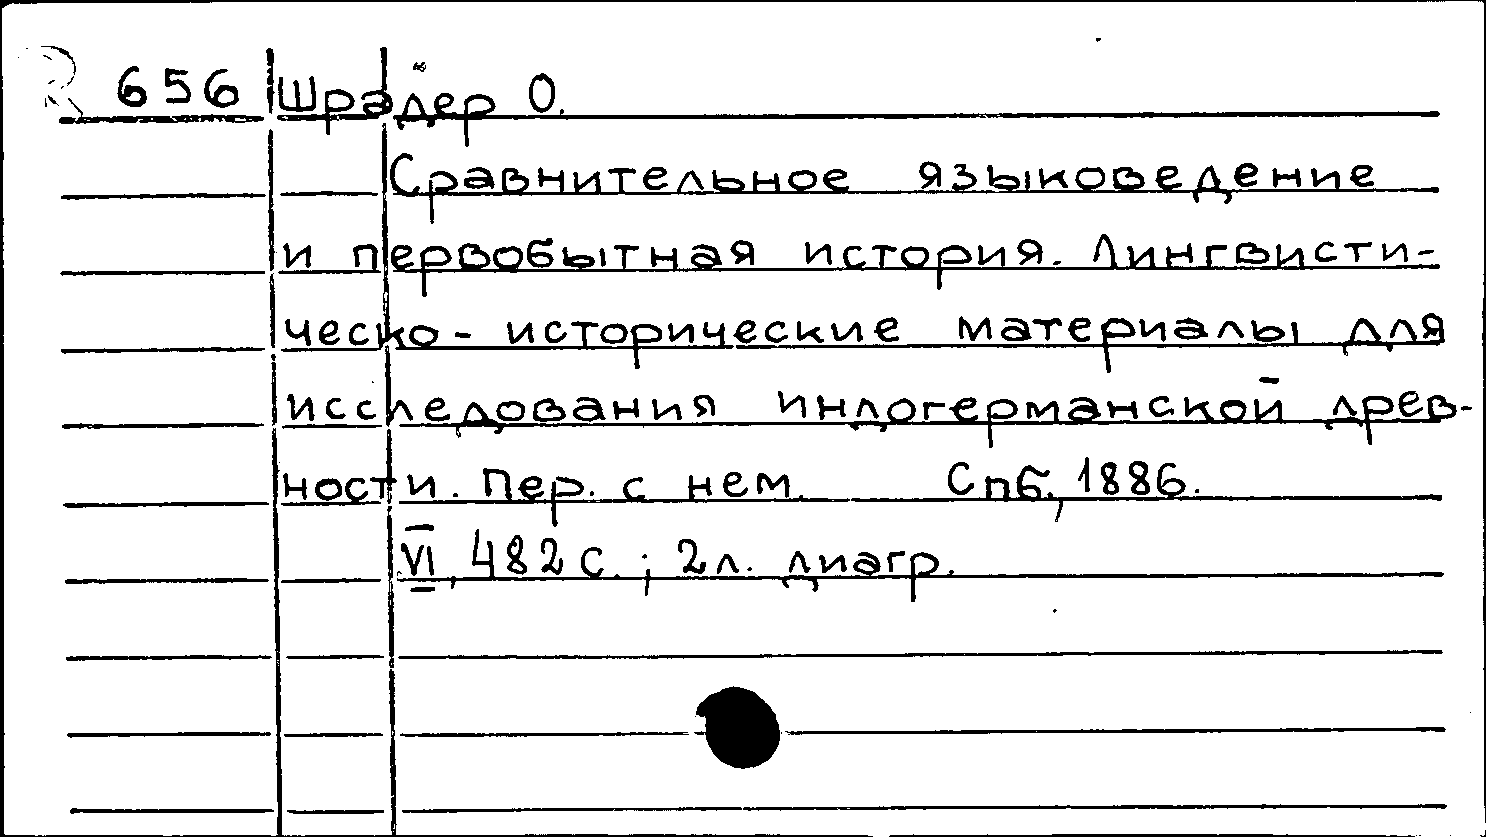 R 656 Шрадер О.
Сравнительное языковедение
и первобытная история. Лингвисти-
ческо-исторические материалы для
исследования индогерманской древ-
ности. Пер. с нем. Спб., 1886.
VI, 482 с.; 2 л. диагр.